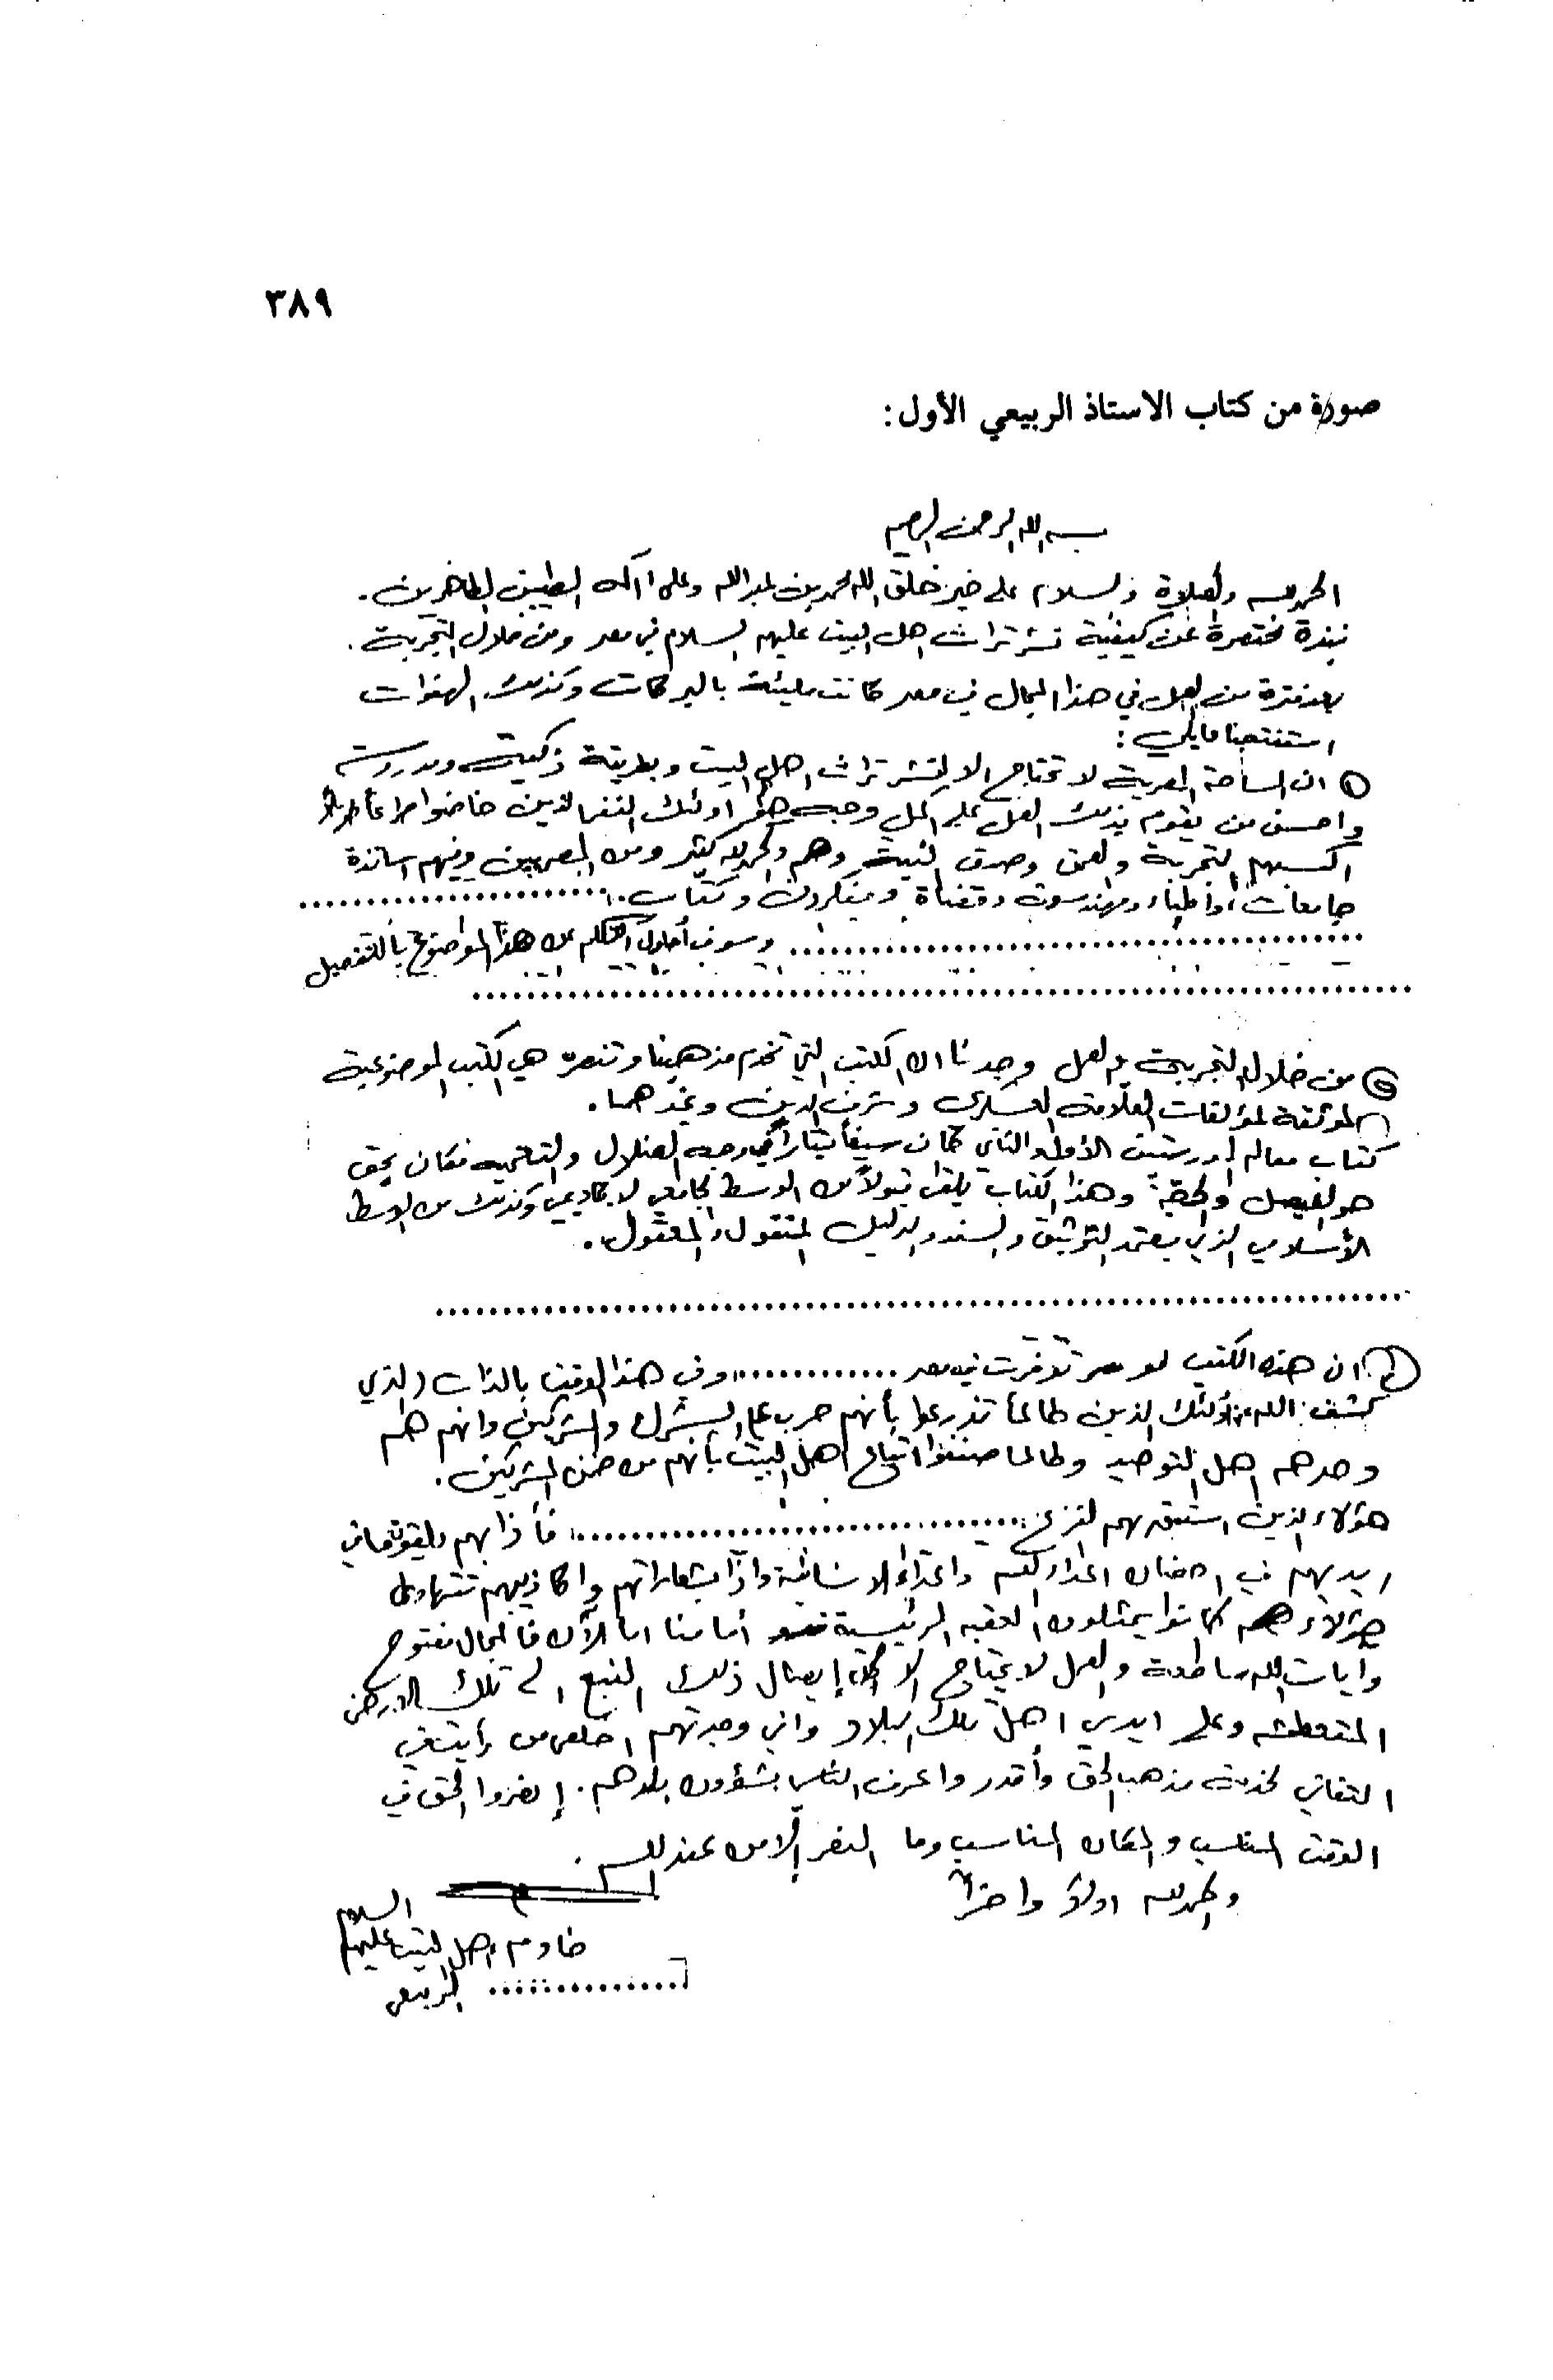 ٣٨٩
صورة من كتاب الاستاذ الربيعي الأول:
بسم الله الرحمن الرحيم
الحمد لله والصلاة والسلام على خير خلق الله محمد بن عبد الله وعلى آله الطيبين الطاهرين.
نبذة مختصرة عن كيفية نشر تراث اهل البيت عليهم السلام في مصر ومن خلال التجربة.
بعد فترة من العمل في هذا المجال في مصر كانت مليئة بالبركات وكذلك الهفوات
استنتجنا مايلي:
١ ان الساحة المصرية لا تحتاج الا لنشر تراث اهل البيت وبطريقة ذكية ومدروسة
واحسن من يقوم بذلك العمل على اكمل وجه هم اولئك النفر الذين خاضوا صراعاً مريراً
اكسبهم التجربة والعمق وصدق النية وهم والحمد لله كثير ومن المصريين وفيهم اساتذة
جامعات وأطباء ومهندسون وقضاة ومفكرون وكتاب ..........
.......... وسوف أحاول التكلم عن هذا الموضوع بالتفصيل
..........
٢ من خلال التجربة والعمل وجدنا ان الكتب التي تخدم مذهبنا وتنصره هي الكتب الموضوعية
الموثقة لمؤلفات العلّامة العسكري وشرف الدين وغيرهما.
كتاب معالم المدرستين الأول والثاني كان سيفاً بتاراً في وجه الضلال والتعمية فكان بحق
هو الفيصل والحقيقة وهذا الكتاب يلقى قبولاً من الوسط الجامعي الاكاديمي وكذلك من الوسط
الأسلامي الذي يعتمد التوثيق والسند والدليل المنقول والمعقول.
..........
٣ ان هذه الكتب لو توفرت في مصر .......... وفي هذا الوقت بالذات (الذي
كشف الله عن أولئك الذين طالما تذرعوا بأنهم حرب على الشرك والمشركين وانهم هم
وحدهم اهل التوحيد وطالما صنفوا اتباع اهل البيت بأنهم من ضمن المشركين.
هؤلاء الذين .......... فأذا بهم يلقون
ايديهم في احضان اعداء الله واعداء الانسانية واذا بشعاراتهم واكاذيبهم تتهاوى
هؤلاء هم كانوا يمثلون العقبه الرئيسية أمامنا اما الآن فالمجال مفتوح
وآيات الله ساطعة والعمل لا يحتاج الا إيصال ذلك النبع الى تلك الارض
المتعطشه وعلى ايدي اهل تلك البلاد واني وجدتهم اخلص من رأيت في
التفاني لخدمة مذهب الحق وأقدر واعرف الناس بشؤون بلدهم. إنصروا الحق في
الوقت المناسب والمكان المناسب وما النصر إلّا من عند الله.
والحمد لله اولاً واخراً
خادم اهل البيت عليهم السلام
.......... الربيعي